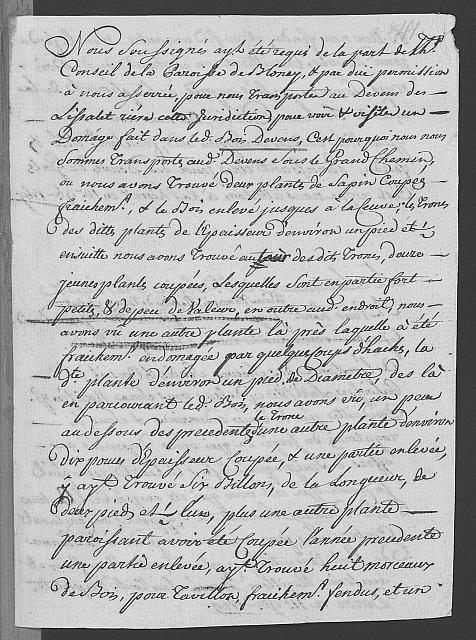 Nous soussignés ayt. été requi de la part de Hble.
Conseil de la Paroisse de Bloney, & par düe permission
à nous asserrée, pour nous transporter au Devens des
rière cette juridiction, pour voir & visiter un
Domage fait dans led. Bois Devens, C'est pourquoi nous nous
sommes transportés aud. Devens sous le Grand Chemin,
ou nous avons trouvé deux plantes de sapin Coupées
fraichemt., & le Bois enlevé jusques à la les Trons
des dittes plantes de l'Epaisseur d'environ un pied et ½
ensuitte nous avons trouvé au tour des dits Trons, douze
jeunes plantes coupées, Lesquelles sont en partie fort
petits & de peu de Valeur, en outre aud. endroit, nous
avons vû une autre plante là près laquelle a été
fraichemt. endomagée par quelques Coups d'hache, la
de. plante d'environ un pied de Diametre, des là
en parcourant led. Bois, nous avons vû, un peu
au dessous des precedentes, le Trone d'une autre plante d'environ
Dix pouces d'Epaisseur Coupée, & une partie enlevée,
y ayt. trouvé six Billons, de la Longueur, de
deux pieds et plus, plus une autre plante
paroissant avoir été Coupée l'année precedente
une partie enlevée, ayt. Trouvé huit morceaux
de Bois, pour Tavillon, fraichemt. fendus, et un